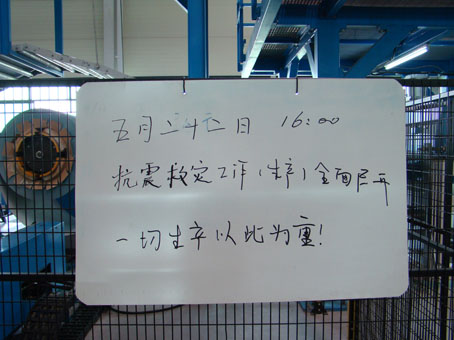 五月二十二日 16:00
抗震救灾工作(生产)全面展开
一切生产以此为重!